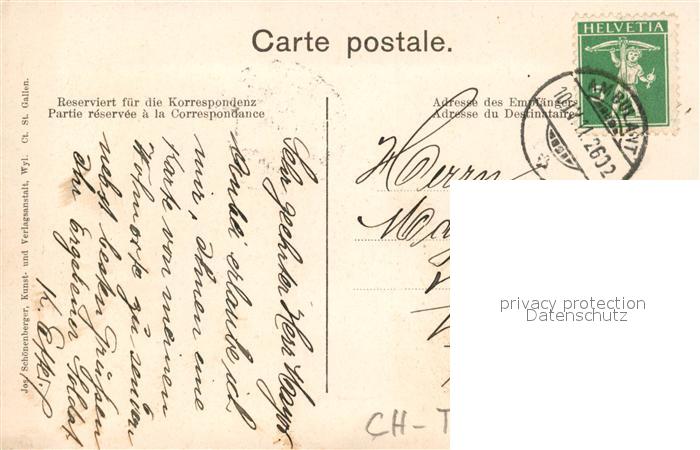 Carte postale.
HELVETIA
AMBULANT
Reserviert für die Korrespondenz
Partie réservée à la Correspondance
Adresse des Empfängers
Adresse du Destinataire
Jos. Schönenberger, Kunst- und Verlagsanstalt, Wyl. Ct. St. Gallen.
Sehr geehrter Herr Major!
Anbei erlaube ich
mir, Ihnen eine
Karte von meinem
zu senden
nebst besten Grüssen
Ihr Ergebener Soldat
K.
Herrn
privacy protection
Datenschutz
CH-T